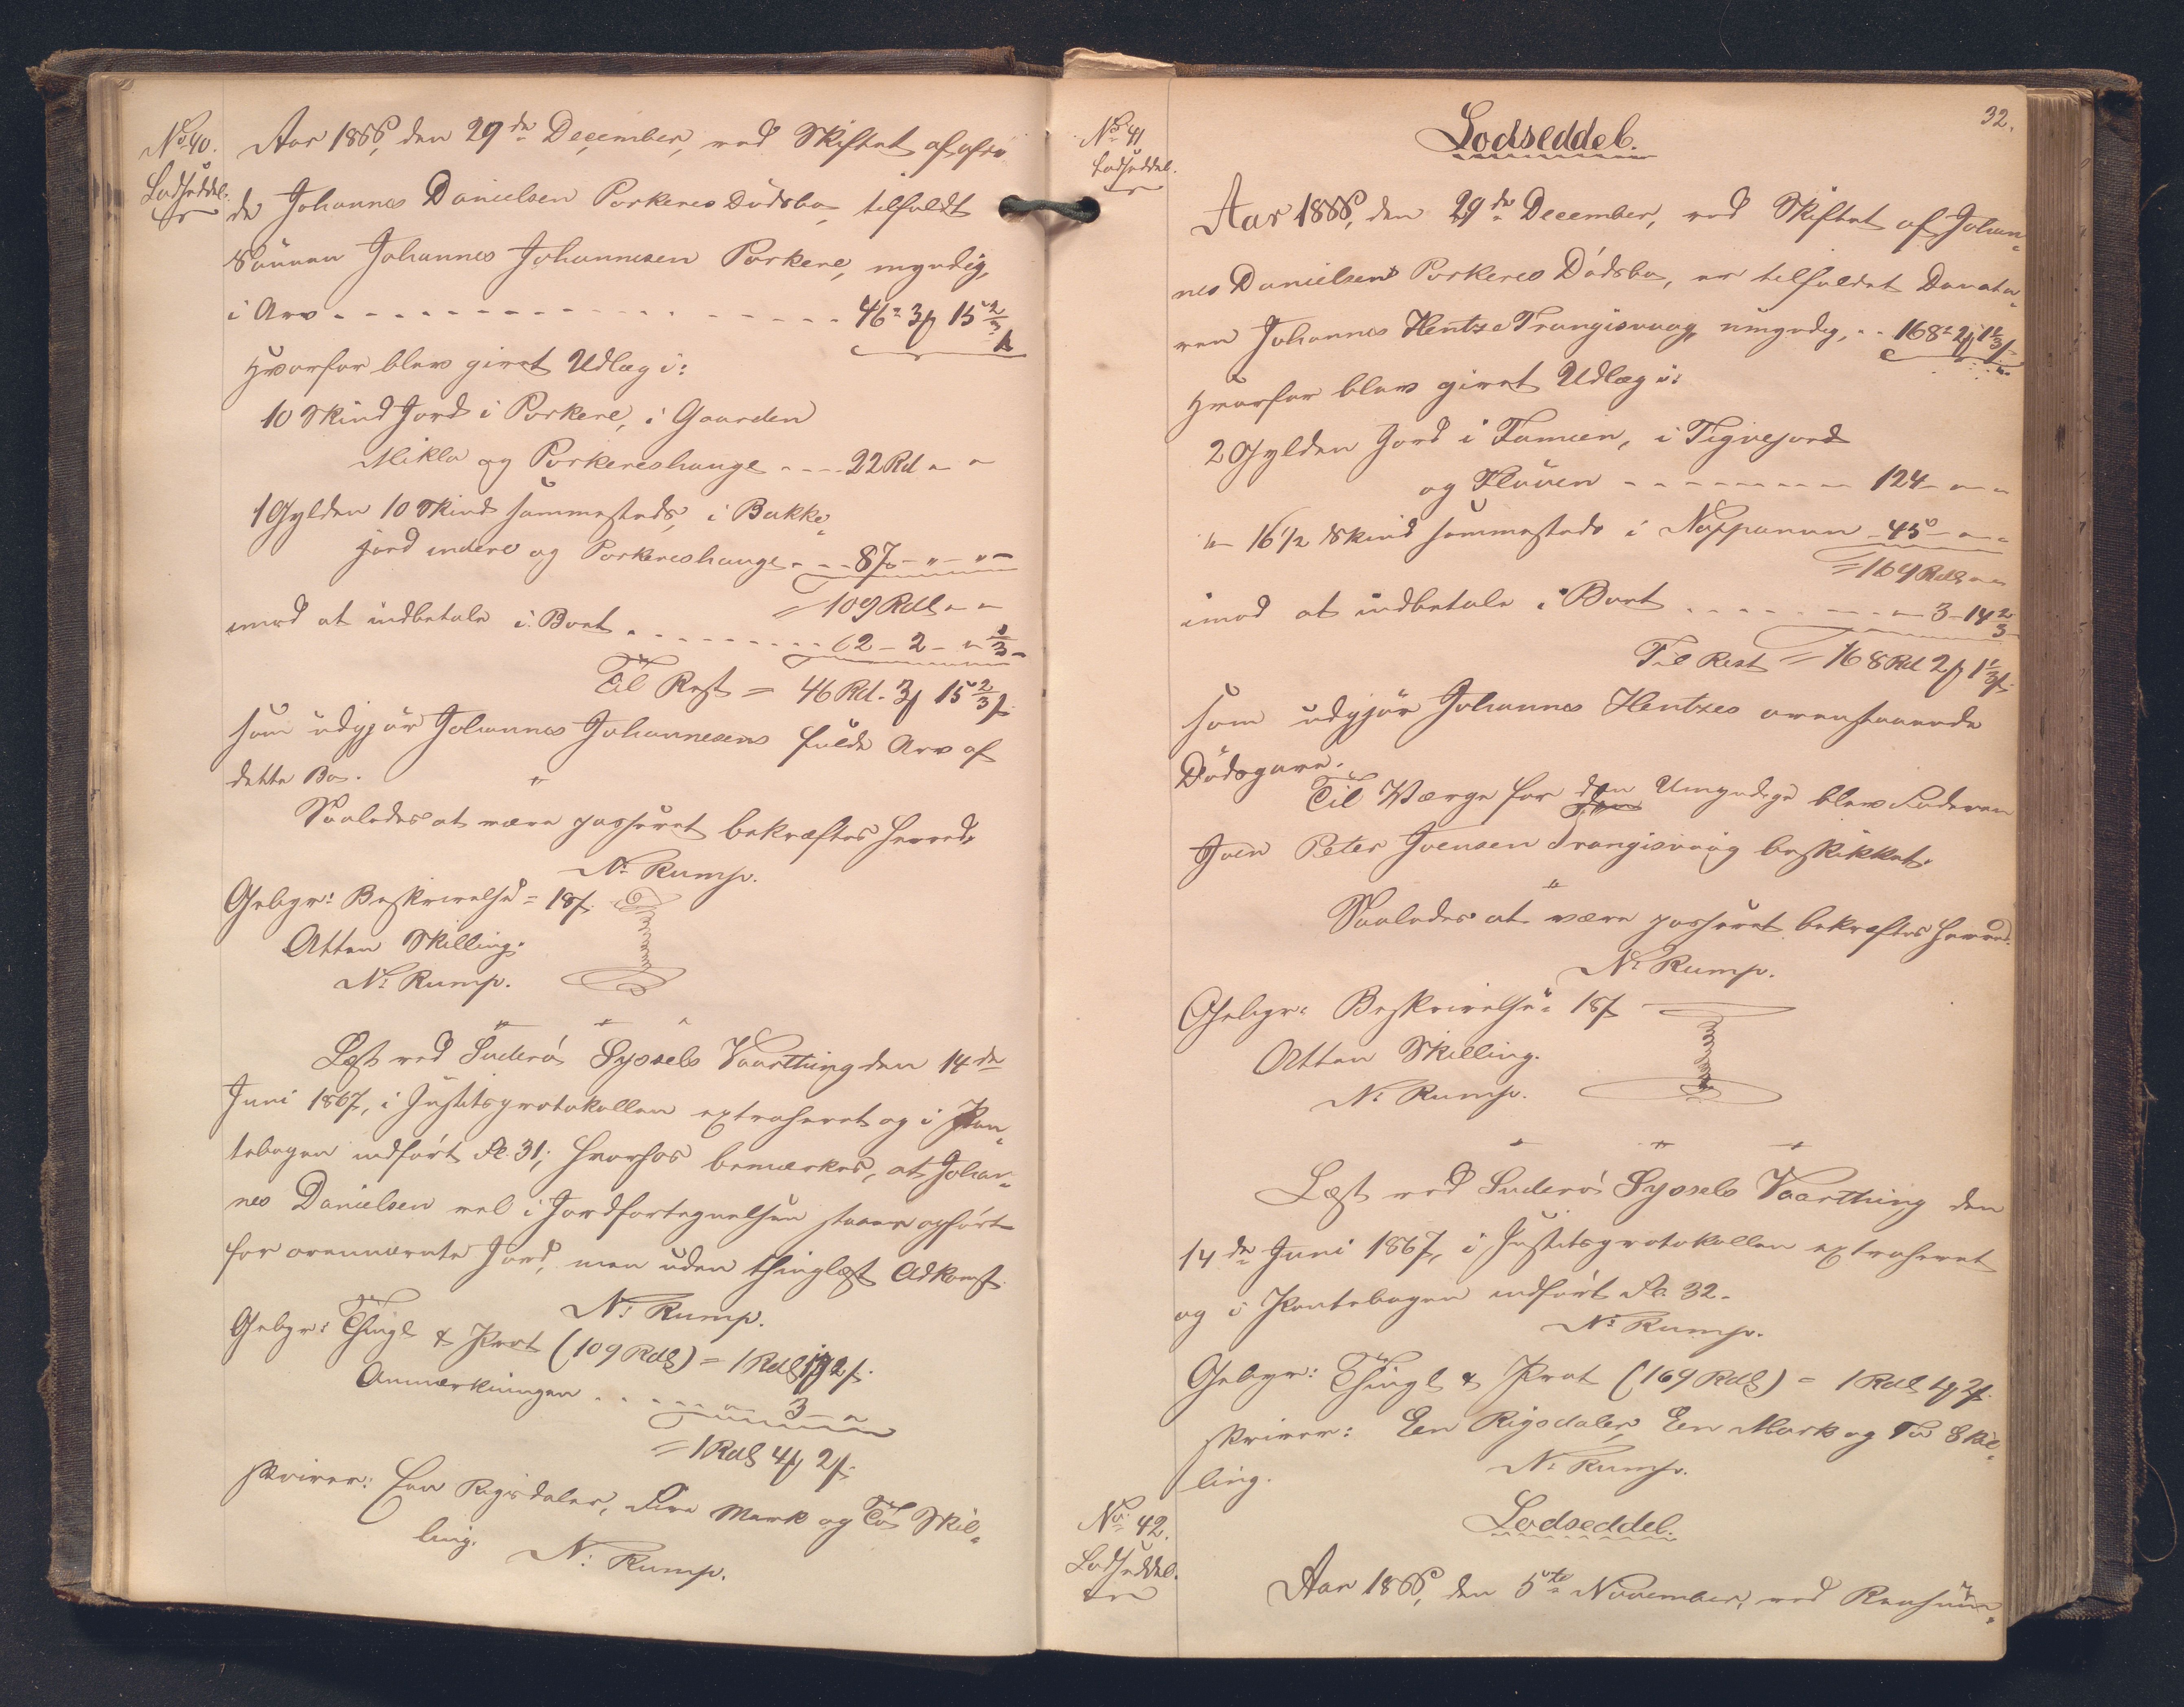 No 40.
Lodseddel.
Aar 1866, den 29de December, ved Skiftet af afdø
de Johannes Danielsen Porkeres Dødsbo, tilfaldt
Sønnen Johannes Johannesen Porkere, myndig,
i Arv - - - - - - - - - - - 46 - 3 ₰ 15 2/3
hvorfor blev givet Udlæg i:
10 Skind Jord i Porkere, i Gaarden
Mikla og Porkereshauge - - - 22 Rd " "
1 Gylden 10 Skind sammesteds, i Bakke„
jord indere og Porkereshauge - - - 87 - " - " -
= 109 Rdl " "
imod at indbetale i Boet - - - - - - - 62 - 2 - " 1/3 -
Til Rest = 46 Rd. 3 ₰ 15 2/3 s.
som udgjør Johannes Johannesens fulde Arv af
dette Bo.
Saaledes at være passeret bekræftes herved.
N. Rump.
Gebyr: Beskrivelse = 18 s.
Atten Skilling.
N. Rump.
Læst ved Suderø Syssels Vaarthing den 14de
Juni 1867, i Justitsprotokollen extraheret og i Pan„
tebogen indført Fol. 31; hvorhos bemærkes, at Johan„
nes Danielsen vel i Jordfortegnelsen staaer opført
for ovennævnte Jord, men uden thinglæst Adkomst.
N. Rump.
Gebyr: Thingl & Prot (109 Rdl) = 1 Rdl 1 ₰ 2 s.
Anmærkningen - - - - " 3 - "
= 1 Rdl 4 ₰ 2 s.
skriver: Een Rigsdaler, Fire Mark og To Skil„
ling. N. Rump.
32.
No 41
Lodseddel.
Lodseddel.
Aar 1866, den 29de December, ved Skiftet af Johan„
nes Danielsens Porkeres Dødsbo, er tilfaldet Donata„
ren Johannes Hentze Trangisvaag, umyndig, - - 168 - 2 ₰ 1 1/3 s
hvorfor blev givet Udlæg i:
2 Gylden Jord i Famien, i Tigvejord
og Fløuen - - - - - - - - 124 - " - "
" - 16 1/2 Skind sammesteds i Nappanun - 45 - " - "
= 169 Rdl " "
imod at indbetale i Boet - - - - - - " - 3 - 14 2/3
Til Rest = 168 Rd 2 ₰ 1 1/3 s.
som udgjør Johannes Hentzes ovenstaaende
Dødsgave.
Til Værge for den Umyndige blev Faderen
Joen Peter Joensen Trangisvaag beskikket.
Saaledes at være passeret bekræftes herved.
N. Rump.
Gebyr: Beskrivelse = 18 s
Atten Skilling.
N. Rump.
Læst ved Suderø Syssels Vaarthing den
14de Juni 1867, i Justitsprotokollen extraheret
og i Pantebogen indført Fol. 32.
N. Rump.
Gebyr: Thingl & Prot (169 Rdl) = 1 Rdl 1 ₰ 2 s.
skriver: Een Rigsdaler, Een Mark og To Skil„
ling.
N. Rump.
No 42.
Lodseddel.
Lodseddel.
Aar 1866, den 5te November, ved